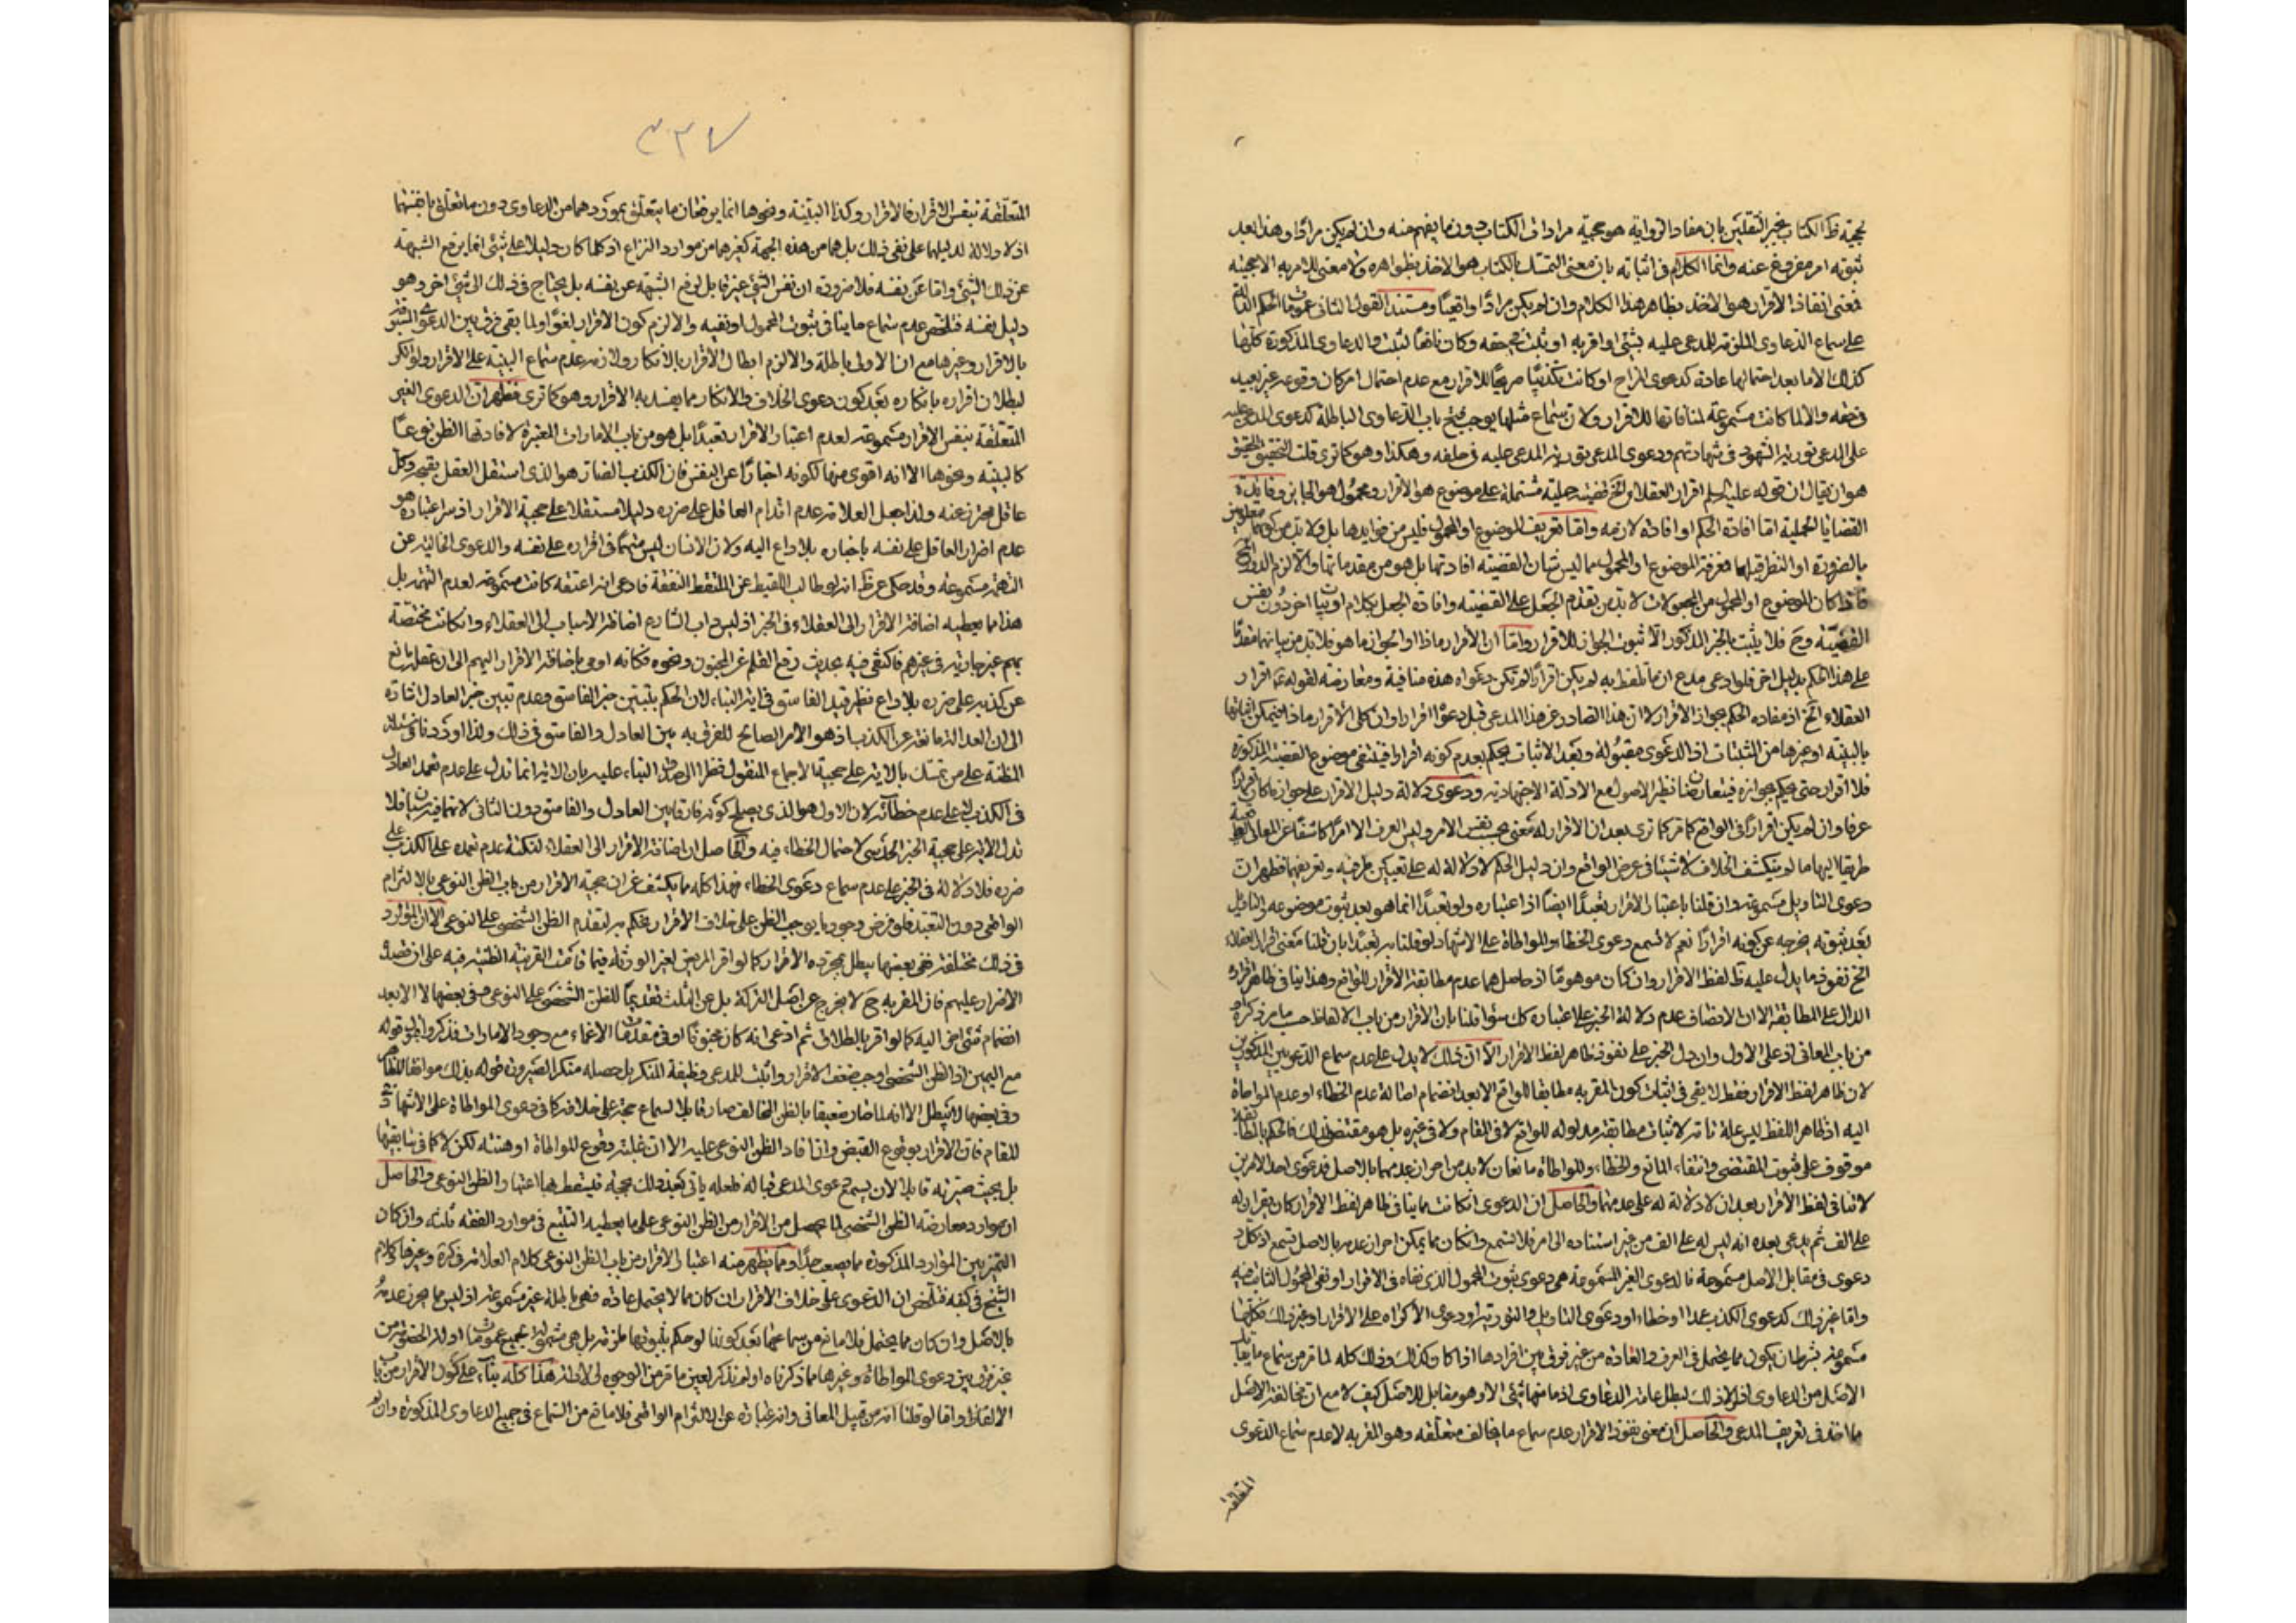 بحجية ظ الكتاب بخبر الثقلين بان مفاد الرواية هو حجية مرادات الكتاب دون ما يفهم منه وان لم يكن مرادًا وهذا بعد
ثبوته امر مفروغ عنه وانما الكلام فى اثباته بان معنى التمسك بالكتاب هو الاخذ بظواهره ولا معنى للامر به الا حجيته
فمعنى انفاذ الاقرار هو الاخذ بظاهر هذا الكلام وان لم يكن مرادًا واقعيًا ومستند القول الثانى عمومات الحكم
على سماع الدعاوى الملزمة للمدعى عليه بشئ لو اقر به او ثبت فى حقه وكان نافعًا لثبت والدعاوى المذكورة كلها
كذلك الا ما بعد احتمالها عادة كدعوى المزاح او كانت تكذيبًا صريحًا للاقرار مع عدم احتمال امكان وقوعه غير بعيد
فى حقه والا لما كانت مسموعة لمنافاتها للاقرار ولان سماع مثلها يوجب فتح باب الدعاوى الباطلة كدعوى المدعى عليه
على المدعى تورية الشهود فى شهادتهم ودعوى المدعى تورية المدعى عليه فى حلفه وهكذا وهو كما ترى قلت التحقيق
هو ان يقال ان قوله عليه السلم اقرار العقلاء الخ قضية حملية مشتملة على موضوع هو الاقرار ومحمول هو الجايز وفايدة
القضايا الحملية اما افادة الحكم او افادة لازمه واما تعريف الموضوع او المحمول فليس من فوايدها بل ولا بد من كونهما معلومين
بالضرورة او النظر قبلها فمعرفة الموضوع او المحمول مما ليس شان القضية افادتها بل هو من مقدماتها والا لزم الدور
فاذا كان الموضوع او المحمول من المجعولات لا بد من تقدم الجعل على القضية وافادة الجعل بكلام او بيان اخر دون نفس
القضية وح فلا يثبت بالخبر المذكور الا ثبوت الجواز للاقرار واما ان الاقرار ماذا او الجواز ما هو فلا بد من بيانهما مقدمًا
على هذا الحكم بدليل اخر فلو ادعى مدع ان ما تلفظ به لم يكن اقرارًا لم تكن دعواه هذه منافية ومعارضة لقوله ع اقرار
العقلاء الخ اذ مفاده الحكم بجواز الاقرار لا ان هذا الصادر عن هذا المدعى قبل دعواه اقرار او ان كل الاقرار ماذا فيمكن اثباتها
بالبينة او غيرها من المثبتات اذ الدعوى مقبولة وبعد الاثبات يحكم بعدم كونه اقرارا فينتفى موضوع القضية المذكورة
فلا اقرار حتى يحكم بجوازه فيتعارضان نظير الاصول مع الادلة الاجتهادية ودعوى دلالة دليل الاقرار على جواز ما كان اقرارًا
عرفا وان لم يكن اقرارًا فى الواقع كما مر كما ترى بعد ان الاقرار له معنى بحسب نفس الامر وليس العرف الا امرًا كاشفًا عن المعانى
طريقا اليها ما لم ينكشف الخلاف لا شيئا فى عرض الواقع وان دليل الحكم لا دلالة له على تعيين طرفيه وتعريفهما فظهر ان
دعوى التاويل مسموعة وان قلنا باعتبار الاقرار تعبدًا ايضًا اذ اعتباره ولو تعبدًا انما هو بعد ثبوت موضوعه والتاويل
بعد ثبوته يخرجه عن كونه اقرارًا نعم لا تسمع دعوى الخطاء والمواطاة على الاشهاد لو قلنا به تعبدًا بان قلنا معنى اقرار العقلاء
الخ نفوذ ما يدل عليه ظ لفظ الاقرار وان كان موهومًا اذ حاصلهما عدم مطابقة الاقرار للواقع وهذا ينافى ظاهر اقراره
الدال على المطابقة الا ان الانصاف عدم دلالة الخبر على اعتباره كك سواء قلنا بان الاقرار من باب الالفاظ حسب ما مر ذكره او
من باب المعانى اذ على الاول وان دل الخبر على نفوذ ظاهر لفظ الاقرار الا ان ذلك لا يدل على عدم سماع الدعويين المذكورين
لان ظاهر لفظ الاقرار فقط لا يفى فى اثبات كون المقر به مطابقا للواقع الا بعد انضمام اصالة عدم الخطاء او عدم المواطاة
اليه اذ ظاهر اللفظ ليس علة تامة لاثبات مطابقة مدلوله للواقع لا فى المقام ولا فى غيره بل هو مقتض لذلك فالحكم بالمطابقة
موقوف على ثبوت المقتضى وانتفاء المانع والخطاء والمواطاة مانعان لا بد من احراز عدمهما بالاصل فدعوى احد الامرين
لا تنافى لفظ الاقرار بعد ان لا دلالة له على عدمهما والحاصل ان الدعوى ان كانت مما ينافى ظاهر لفظ الاقرار كان يقر ان له
على الف ثم يدعى بعده انه ليس له على الف من غير استناده الى امر فلا تسمع وان كان مما يمكن احراز عدمه بالاصل تسمع اذ كل
دعوى فى مقابل الاصل مسموعة فالدعوى الغير المسموعة هى دعوى ثبوت المحمول الذى نفاه فى الاقرار او نفى المحمول الثابت فيه
واما غير ذلك كدعوى الكذب عمدا او خطاء او دعوى التاويل والتورية او دعوى الاكراه على الاقرار او غير ذلك فكلها
مسموعة بشرط ان يكون مما يحتمل فى العرف والعادة من غير فرق بين افرادها اذا كان كذلك وذلك كله لما مر من سماع ما يقابل
الاصل من الدعاوى اذ لو لا ذلك لبطل عامة الدعاوى اذ ما منها شئ الا وهو مقابل للاصل كيف لا مع ان مخالفة الاصل
مما اخذ فى تعريف المدعى والحاصل ان معنى نفوذ الاقرار عدم سماع ما يخالف متعلقه وهو المقر به لا عدم سماع الدعوى
المتعلقة
٣٢٧
المتعلقة بنفس الاقرار فالاقرار وكذا البينة ونحوها انما يرفعان ما يتعلق بموردهما من الدعاوى دون ما تعلق بانفسهما
اذ لا دلالة لدليلهما على نفى ذلك بل هما من هذه الجهة كغيرهما من موارد النزاع اذ كلما كان دليلا على شئ انما يرفع الشبهة
عن ذلك الشئ واما عن نفسه فلا ضرورة ان نفس الشئ غير قابل لرفع الشبهة عن نفسه بل يحتاج فى ذلك الى شئ اخر وهو
دليل نفسه فتلخص عدم سماع ما ينافى ثبوت المحمول او نفيه والا لزم كون الاقرار لغوًا ولما بقى فرق بين الدعوى المسبوقة
بالاقرار وغيرها مع ان الاولى باطلة والا لزم ابطال الاقرار بالانكار ولازمه عدم سماع البينة على الاقرار ولو انكر
لبطلان اقراره بانكاره بعد كون دعوى الخلاف والانكار مما يفسد به الاقرار وهو كما ترى فظهر ان الدعوى الغير
المتعلقة بنفس الاقرار مسموعة لعدم اعتبار الاقرار تعبدًا بل هو من باب الامارات المعتبرة لافادتها الظن نوعًا
كالبينة ونحوها الا انه اقوى منها لكونه اخبارًا عن النفس فان الكذب الضار هو الذى استقل العقل بقبحه وكل
عاقل محترز عنه ولذا جعل العلامة عدم اقدام العاقل على ضرره دليلا مستقلا على حجية الاقرار اذ سر اعتباره هو
عدم اضرار العاقل على نفسه باخباره بلا داع اليه ولان الانسان ليس متهمًا فى اقراره على نفسه والدعوى الخالية عن
التهمة مسموعة وقد حكى عن ظ انه لو طالب اللقيط عن الملتقط النفقة فادعى انه اعتقه كانت مسموعة لعدم التهمة بل
هذا مما يعطيه اضافة الاقرار الى العقلاء فى الخبر اذ ليس داب الشارع اضافة الاسباب الى العقلاء وان كانت مختصة
بهم غير جارية فى غيرهم فاكتفى فيه بحديث رفع القلم عن المجنون ونحوه فكانه اومى باضافة الاقرار اليهم الى ان عقله مانع
عن كذبه على ضرره بلا داع نظير قيد الفاسق فى اية النباء لان الحكم بتبين خبر الفاسق وعدم تبين خبر العادل اشارة
الى ان العدالة مانعة عن الكذب اذ هو الامر الصالح للفرق به بين العادل والفاسق فى ذلك ولذا اوردنا فى مسئلة
المظنة على من تمسك بالاية على حجية الاجماع المنقول نظرا الى صدق النباء عليه بان الاية انما تدل على عدم تعمد العادل
فى الكذب لا على عدم خطائه لان الاول هو الذى يصلح كونه فارقا بين العادل والفاسق دون الثانى لانهما فيه سيان فلا
تدل الاية على حجية الخبر الحدسى لاحتمال الخطاء فيه والحاصل ان اضافة الاقرار الى العقلاء لنكتة عدم تعمده على الكذب على
ضرره فلا دلالة فى الخبر على عدم سماع دعوى الخطاء فهذا كله مما يكشف عن ان حجية الاقرار من باب الظن النوعى بالالتزام
الواقعى دون التعبد فلو فرض وجود ما يوجب الظن على خلاف الاقرار يحكم به لتقدم الظن الشخصى على النوعى الا ان الموارد
فى ذلك مختلفة ففى بعضها يبطل بمجرده الاقرار كما لو اقر المريض لغير الورثة فيما قامت القرينة الظنية فيه على ان قصده
الاضرار عليهم فان المقر به ح لا يخرج عن اصل التركة بل عن الثلث تقديمًا للظن الشخصى على النوعى وفى بعضها لا الا بعد
انضمام شئ اخر اليه كما لو اقر بالطلاق ثم ادعى انه كان مجنونًا او فى مقدمات الاغماء مع وجود الامارات فذكروا قبول قوله
مع اليمين اذ الظن الشخصى اوجب ضعف الاقرار واثبت للمدعى وظيفة المنكر بل جعله منكرا لصيرورة قوله بذلك موافقا للظاهر
وفى بعضها لا يبطل الا انه لما صار ضعيفا بالظن المخالف صار قابلا لسماع حجة على خلافه كما فى دعوى المواطاة على الاشهاد
للمقام فان الاقرار بوقوع القبض وان افاد الظن النوعى عليه الا ان غلبة وقوع المواطاة اوهنته لكن لا كما فى سابقيها
بل بحيث صيرته قابلا لان يسمع دعوى المدعى قباله فلعله ياتى بعد ذلك بحجة فيسقط بها اعتبار الظن النوعى والحاصل
ان موارد معارضة الظن الشخصى لما يحصل من الاقرار من الظن النوعى على ما يعطيه التتبع فى موارد الفقه ثلثة وان كان
التميز بين الموارد المذكورة مما يصعب جدًا ومما يظهر منه اعتبار الاقرار من باب الظن النوعى كلام العلامة فى كرة وغيرها وكلام
الشيخ فى كفه فتلخص ان الدعوى على خلاف الاقرار ان كان مما لا يحتمل عادة فهى باطلة غير مسموعة اذ ليس مما يحرز عدمه
بالاصل وان كان مما يحتمل فلا مانع من سماعها بعد كونها لو حكم بثبوتها ملزمة بل هى مشمولة لجميع عمومات ادلة الخصومة من
غير فرق بين دعوى المواطاة وغيرها مما ذكرناه او لم نذكر لعين ما مر من الوجوه الادلة هذا كله بناء على كون الاقرار من باب
الالفاظ واما لو قلنا انه من قبيل المعانى وانه عبارة عن الالتزام الواقعى فلا مانع من السماع فى جميع الدعاوى المذكورة وان